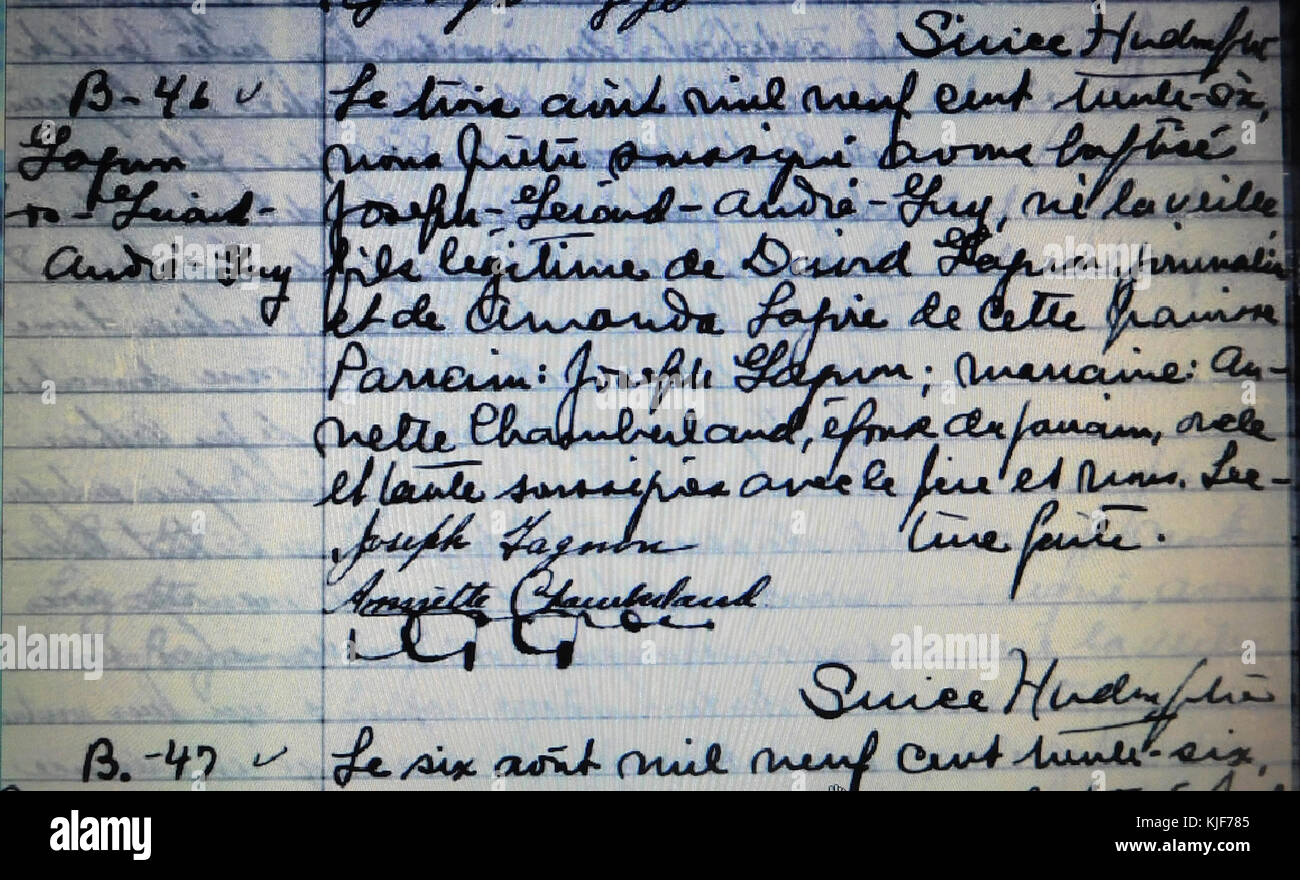 B-46 ✓ Le trois août mil neuf cent trente-six,
Gagnon nous prêtre soussigné avons baptisé
Jos-Gérard- Joseph-Gérard-André-Guy, né la veille
André-Guy fils légitime de David Gagnon, journalier
et de Amanda Lapise de cette paroisse
Parrain: Joseph Gagnon; marraine: An-
nette Chamberland, épouse du parrain, oncle
et tante soussignés avec le père et nous. Lec-
Joseph Gagnon ture faite.
Annette Chamberland
B.-47 ✓ Le six août mil neuf cent trente-six,
alamy
alamy
Image ID: KJF785
www.alamy.com